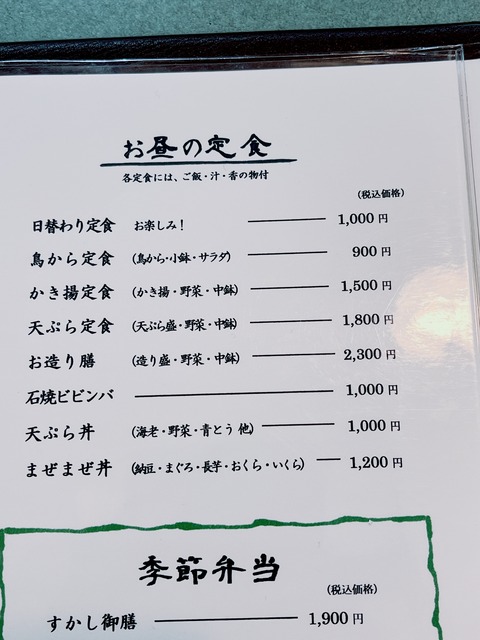 お昼の定食
各定食には、ご飯・汁・香の物付
(税込価格)
日替わり定食 お楽しみ! 1,000円
鳥から定食 (鳥から・小鉢・サラダ) 900円
かき揚定食 (かき揚・野菜・中鉢) 1,500円
天ぷら定食 (天ぷら盛・野菜・中鉢) 1,800円
お造り膳 (造り盛・野菜・中鉢) 2,300円
石焼ビビンバ 1,000円
天ぷら丼 (海老・野菜・青とう 他) 1,000円
まぜまぜ丼 (納豆・まぐろ・長芋・おくら・いくら) 1,200円
季節弁当
(税込価格)
すかし御膳 1,900円